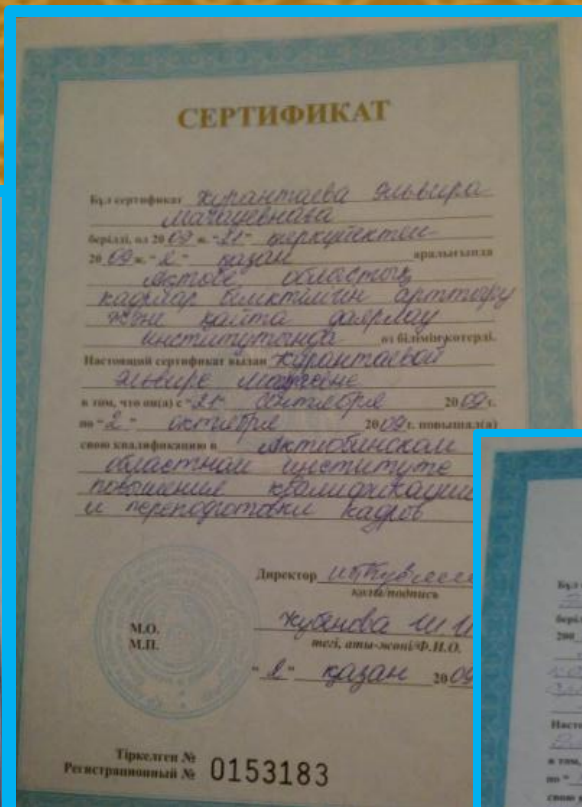 СЕРТИФИКАТ
Бұл сертификат Курантаева Эльвира
берілді, ол 2009 ж. "21" қыркүйектен
2009 ж. "2" қазан аралығында
Ақтөбе облыстық
кадрлар біліктілігін арттыру
және қайта даярлау
институтында өз білімін көтерді.
Настоящий сертификат выдан Курантаевой
Эльвире
в том, что он(а) с "21" сентября 2009 г.
по "2" октября 2009 г. повышал(а)
свою квалификацию в Актюбинском
областном институте
повышения квалификации
и переподготовки кадров
Директор
қолы/подпись
М.О.
М.П.
Жубанова Ш.И
тегі, аты-жөні/Ф.И.О.
"2" қазан 2009
Тіркелген №
Регистрационный № 0153183
Бұл
берілді
200
Насто
в том,
по "
свою